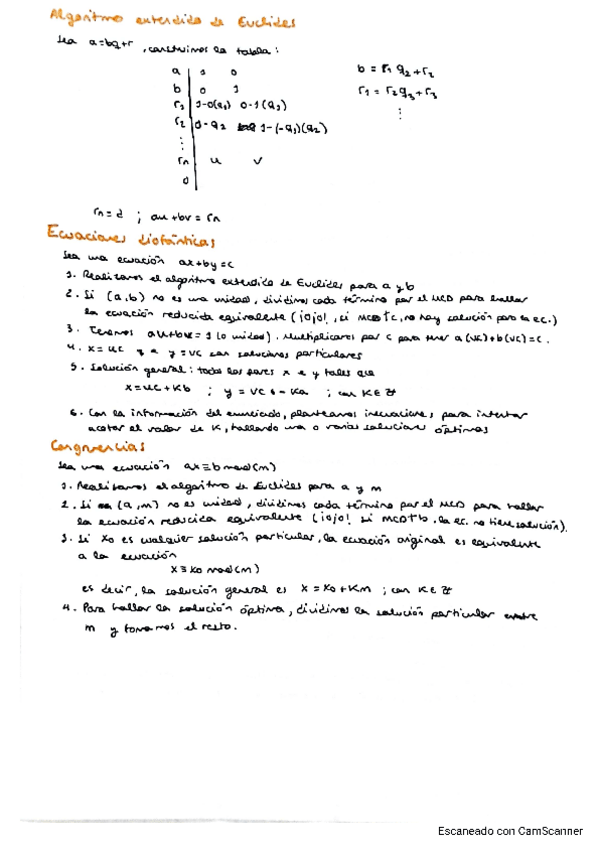 Algoritmo extendido de Euclides
Sea a=bq+r, construimos la tabla:
a 1 0 b = r1 q2 + r2
b 0 1 r1 = r2 q3 + r3
r1 1-0(q1) 0-1(q1) ⋮
r2 0-q2 1-(-q1)(q2)
⋮
rn u v
0
rn = d ; au+bv = rn
Ecuaciones diofánticas
Sea una ecuación ax+by=c
1. Realizamos el algoritmo extendido de Euclides para a y b
2. Si (a,b) no es una unidad, dividimos cada término por el MCD para hallar
la ecuación reducida equivalente (¡ojo!, si MCD∤c, no hay solución para la ec.)
3. Tenemos au+bv=1 (o unidad). Multiplicamos por c para tener a(uc)+b(vc)=c.
4. x=uc y y=vc son soluciones particulares
5. Solución general: todos los pares x e y tales que
x=uc+Kb ; y = vc - Ka ; con K∈ℤ
6. Con la información del enunciado, planteamos inecuaciones para intentar
acotar el valor de K, hallando una o varias soluciones óptimas
Congruencias
Sea una ecuación ax≡b mod(m)
1. Realizamos el algoritmo de Euclides para a y m
2. Si (a,m) no es unidad, dividimos cada término por el MCD para hallar
la ecuación reducida equivalente (¡ojo! si MCD∤b, la ec. no tiene solución).
3. Si x0 es cualquier solución particular, la ecuación original es equivalente
a la ecuación
x≡x0 mod(m)
es decir, la solución general es x = x0+Km ; con K∈ℤ
4. Para hallar la solución óptima, dividimos la solución particular entre
m y tomamos el resto.
Escaneado con CamScanner